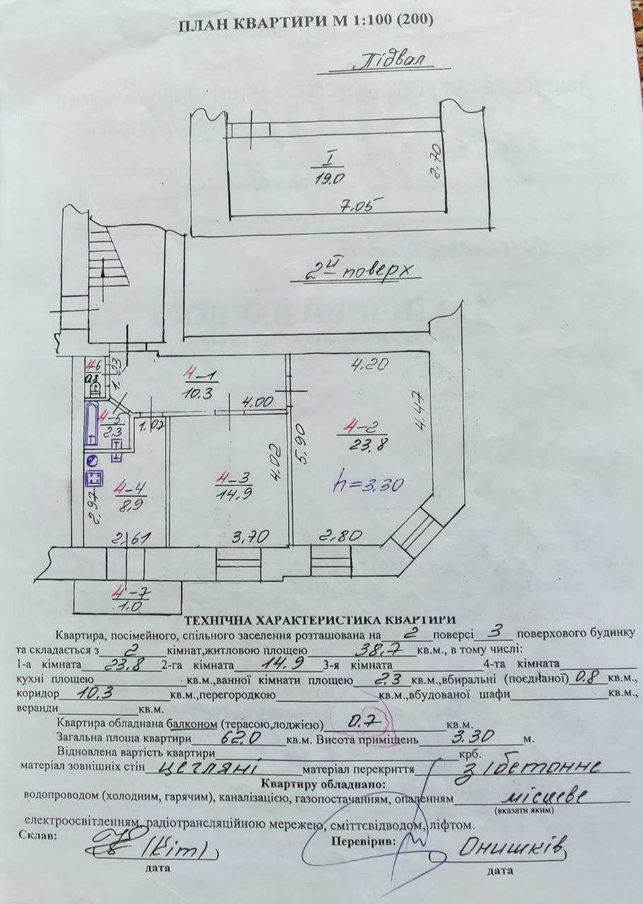 ПЛАН КВАРТИРИ М 1:100 (200)
Підвал
I
19.0
2.70
7.05
2й поверх
4-6
0.8
1.23
4-1
10.3
4.00
4.20
4-5
2.3
1.02
4-2
23.8
4.47
5.90
4.02
4-3
14.9
h=3.30
4-4
8,9
2,97
2,61
3.70
2.80
4-7
1.0
ТЕХНІЧНА ХАРАКТЕРИСТИКА КВАРТИРИ
Квартира, посімейного, спільного заселення розташована на 2 поверсі 3 поверхового будинку
та складається з 2 кімнат,житловою площею 38,7 кв.м., в тому числі:
1-а кімната 23.8 2-га кімната 14.9 3-я кімната 4-та кімната
кухні площею кв.м.,ванної кімнати площею 2.3 кв.м.,вбиральні (поєднаної) 0.8 кв.м.,
коридор 10.3 кв.м.,перегородкою кв.м.,вбудованої шафи кв.м.,
веранди кв.м.
Квартира обладнана балконом (терасою,лоджією) 0.7 кв.м.
Загальна площа квартири 62.0 кв.м. Висота приміщень 3.30 м.
Відновлена вартість квартири крб.
матеріал зовнішніх стін цегляні матеріал перекриття з/бетонне
Квартиру обладнано:
водопроводом (холодним, гарячим), каналізацією, газопостачанням, опаленням місцеве
(вказати яким)
електроосвітленням, радіотрансляційною мережею, сміттєвідводом, ліфтом.
Склав: (Кіт) Перевірив: Онишків
дата дата